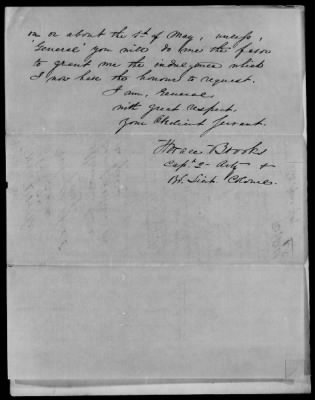 on or about the 1st of May, unless,
General you will do me the favor
to grant me the indulgence which
I now have the honour to request.
I am, General
with great respect
your Obedient Servant.
Horace Brooks
Capt 2d Arty &
Bt. Lieut Colonel